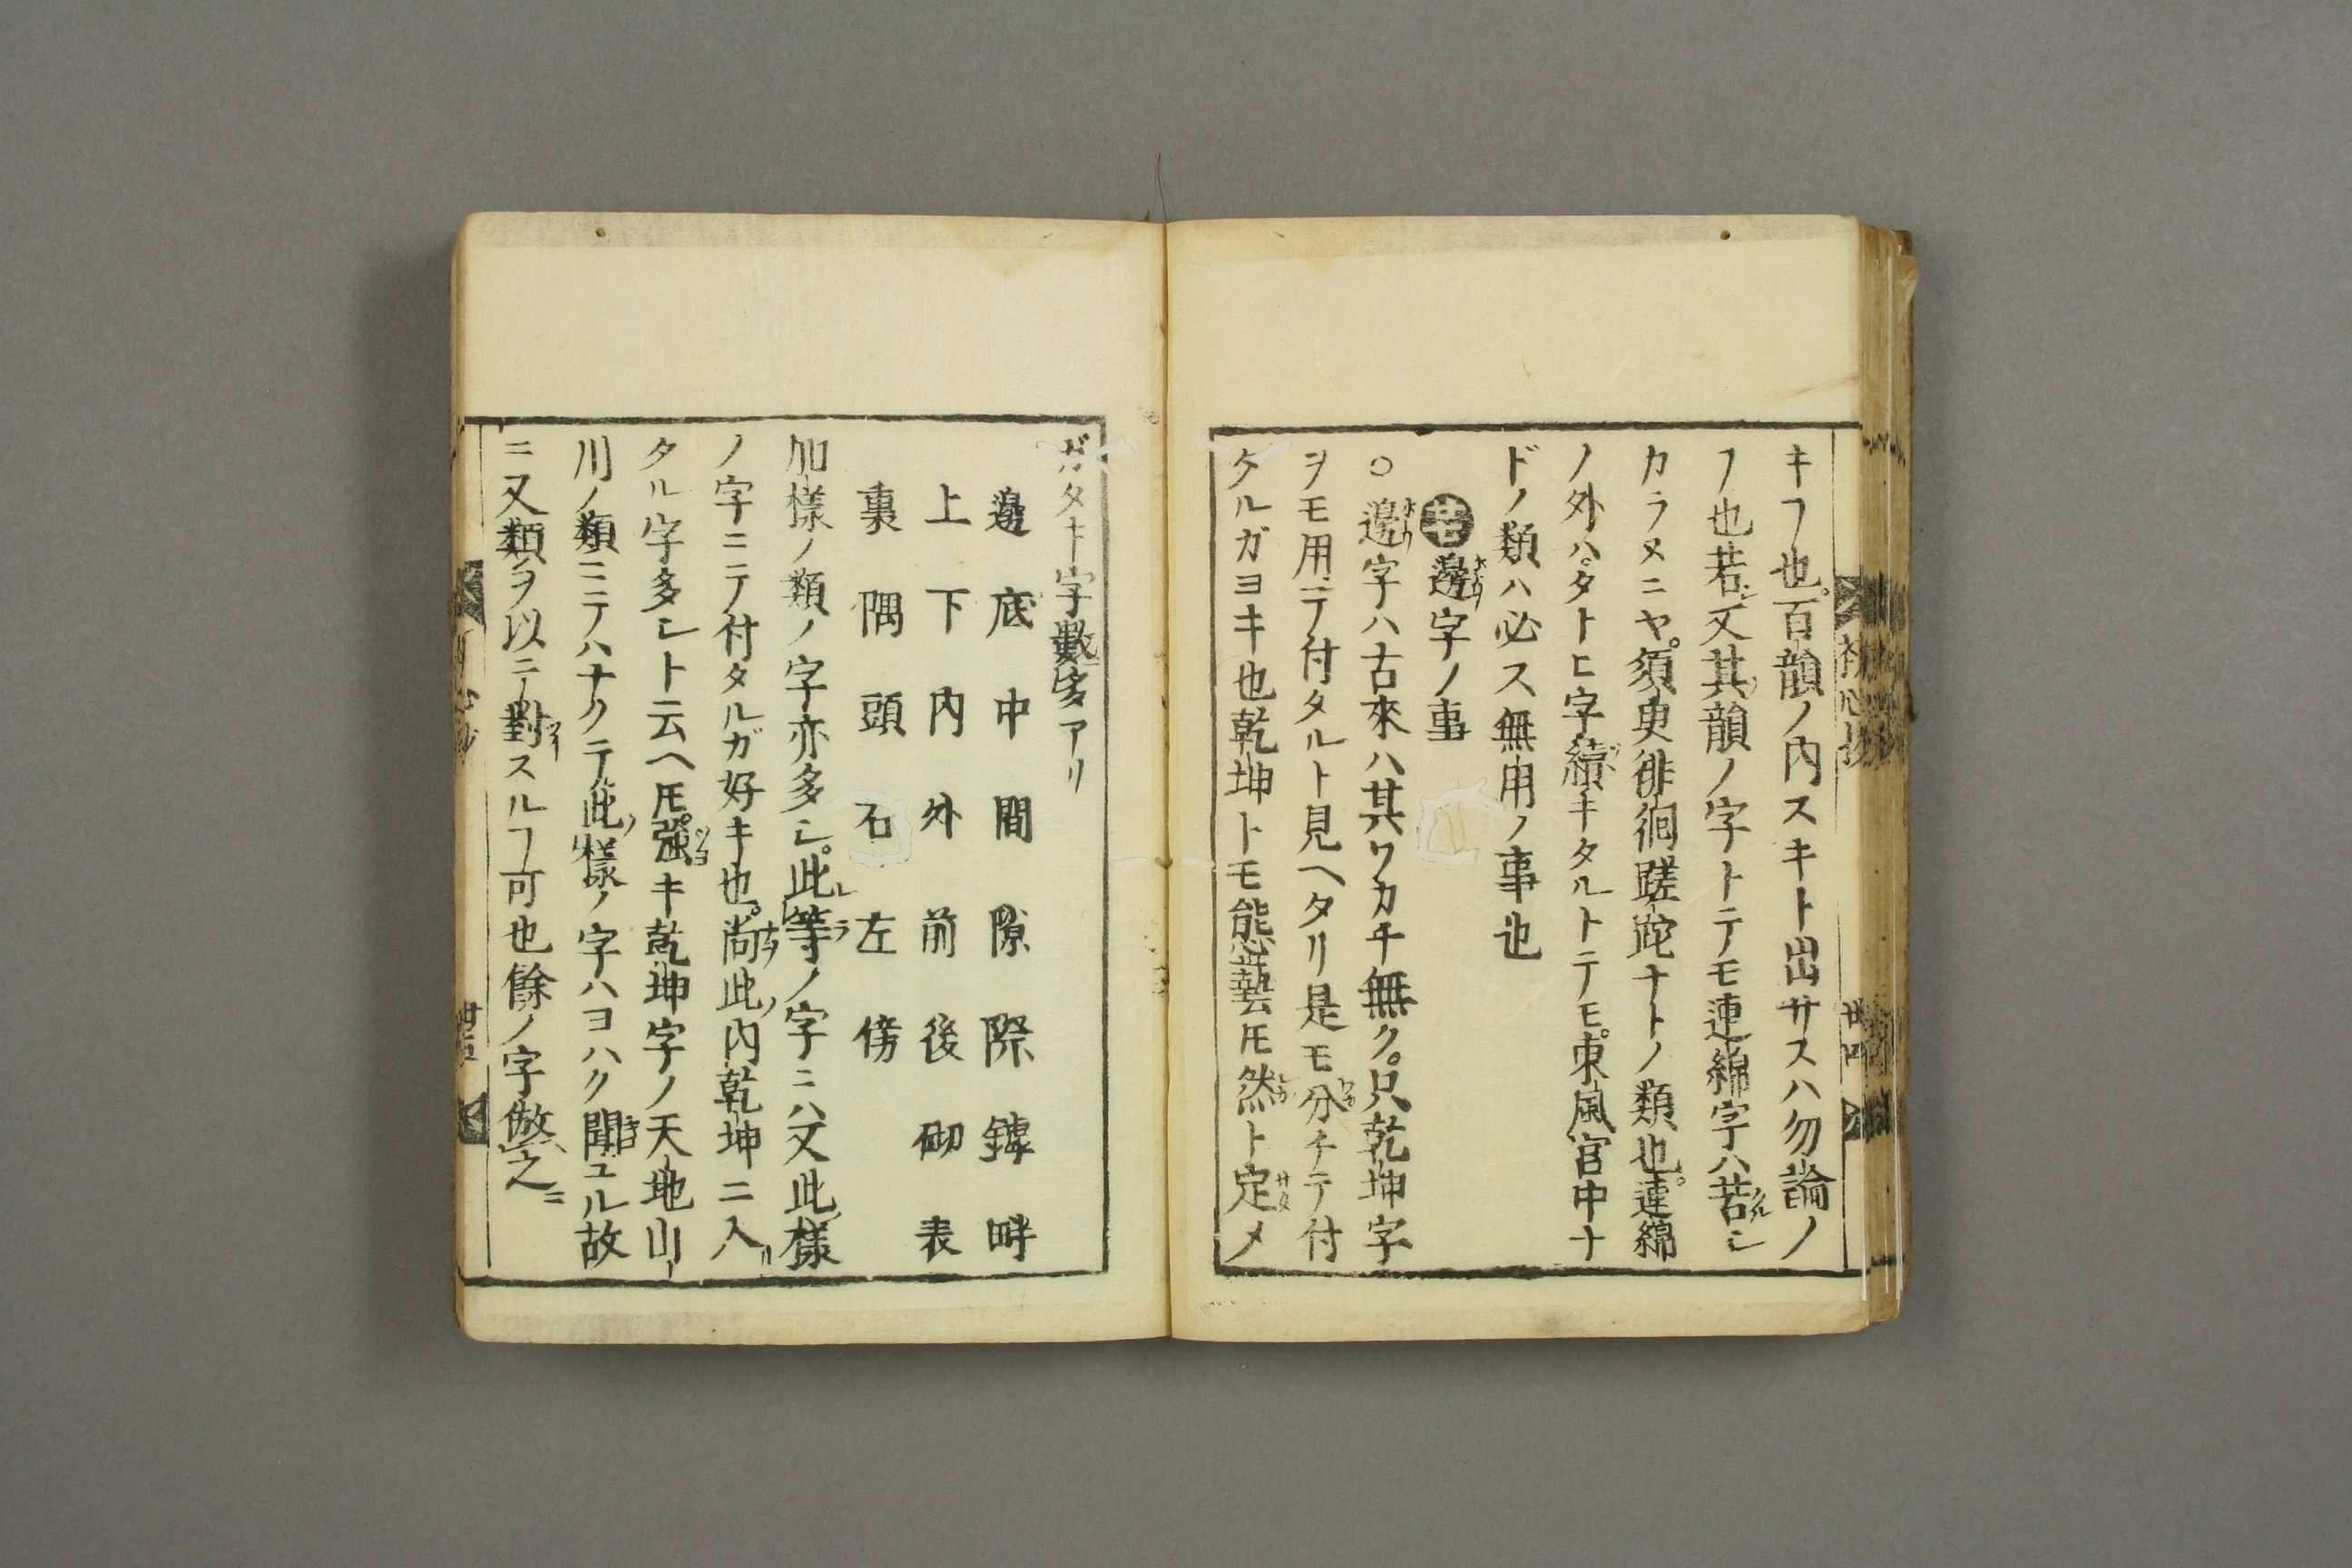 キフ也。百韻ノ内スキト出サスハ勿論ノ
フ也若シ又其ノ韻ノ字トテモ連綿字ハ苦シ
カラヌニヤ。須臾徘徊蹉跎ナトノ類也。連綿
ノ外ハ。タトヒ字續キタルトテモ。東風宮中ナ
ドノ類ハ必ス無用ノ事也
邊字ノ事
○邊字ハ古來ハ其ワカチ無ク。只乾坤字
ヲモ用ニテ付タルト見ヘタリ是モ分チテ付
タルガヨキ也乾坤トモ態藝𪜈然ト定メ
ガタキ字數多アリ
邊 底 中 間 隙 際 罅 畔
上 下 内 外 前 後 砌 表
裏 隅 頭 右 左 傍
加樣ノ類ノ字亦多シ。此等ノ字ニハ又此樣
ノ字ニテ付タルガ好キ也。尚此ノ内乾坤ニ入
タル字多シト云ヘ𪜈。強キ乾坤字ノ天地山
川ノ類ニテハナクテ此ノ樣ノ字ハヨハク聞ユル故
ニ又類ヲ以テ對スルフ可也餘ノ字倣之
初心抄
廿四